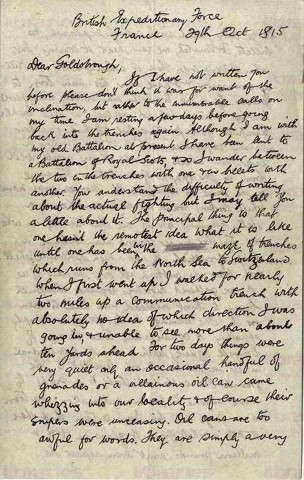 British Expeditionary Force
France 29th Oct 1915
Dear Goldsbrough,
If I have not written you
before please don't think it was for want of the
inclination, but rather to the innumerable calls on
my time. I am resting a few days before going
back into the trenches again. Although I am with
my old Battalion at present I have been lent to
a Battalion of Royal Scots, & so I wander between
the two in the trenches with one & in billets with
another. You understand the difficulty of writing
about the actual fighting but I may tell you
a little about it. The principal thing is that
one hasn't the remotest idea what it is like
until one has been in the maze of trenches
which runs from the North Sea to Switzerland
When I first went up I walked for nearly
two miles up a communication trench with
absolutely no idea of which direction I was
going in & unable to see more than about
ten yards ahead. For two days things were
very quiet only an occasional handful of
grenades or a villainous oil can came
whizzing into our locality & of course their
snipers were unceasing. Oil cans are too
awful for words. They are simply a very